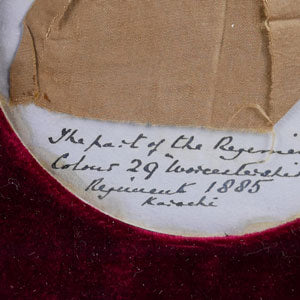 The part of the Regimen
Colour 29 Worcestershi
Regiment 1885
Karachi